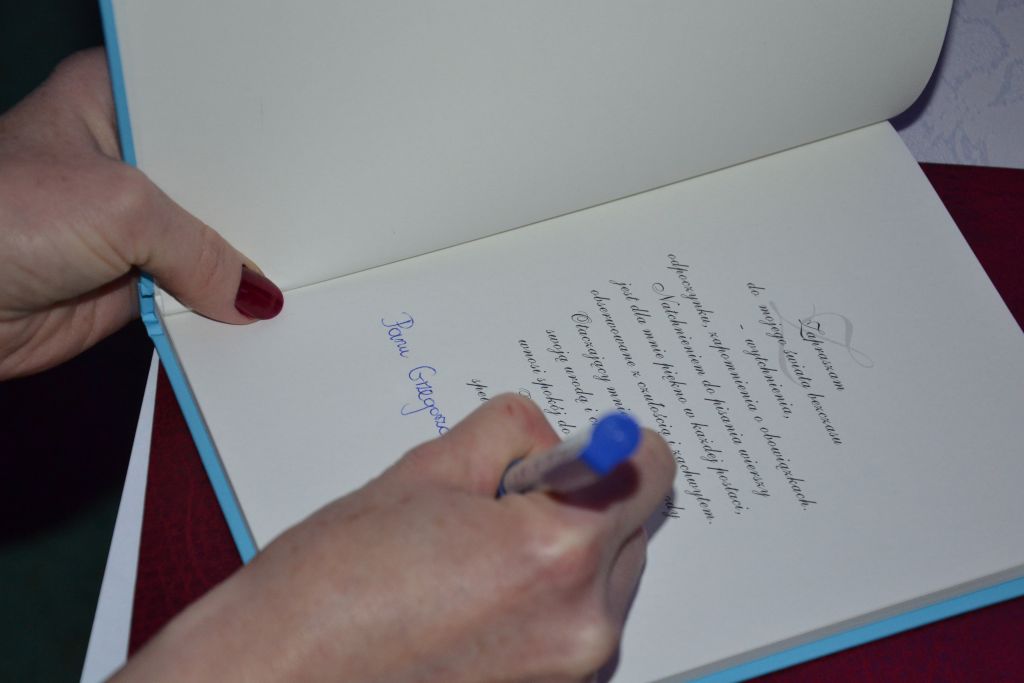 Zapraszam
do mojego świata bezczasu
- wytchnienia,
odpoczynku, zapomnienia o obowiązkach.
Natchnieniem do pisania wierszy
jest dla mnie piękno w każdej postaci,
obserwowane z czułością i zachwytem.
Otaczający mnie
swoją urodą i
wnosi spokój do
Panu Grzegorzo